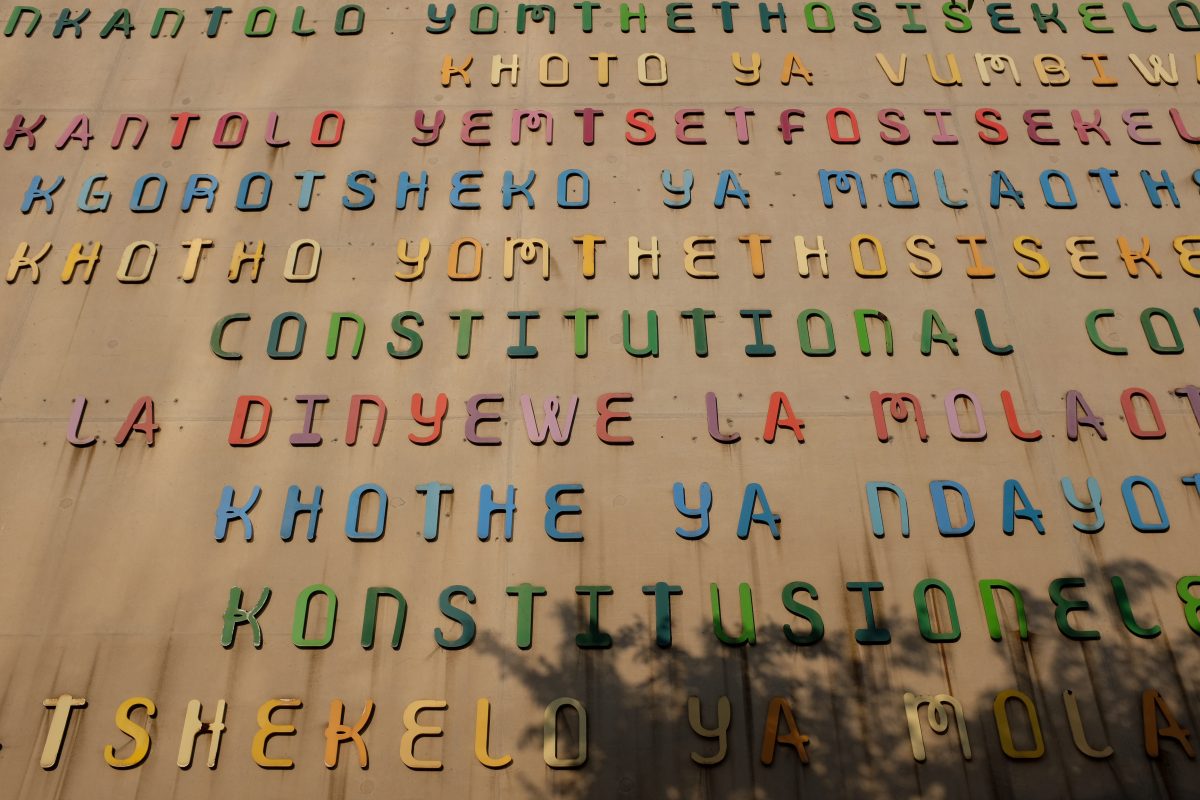 NKANTOLO YOMTHETHOSISEKELO
KHOTO YA VUMBIW
KANTOLO YEMTSETFOSISEKEL
KGOROTSHEKO YA MOLAOTHS
KHOTHO YOMTHETHOSISEKE
CONSTITUTIONAL COU
LA DINYEWE LA MOLAOT
KHOTHE YA NDAYOT
KONSTITUSIONELE
TSHEKELO YA MOLA